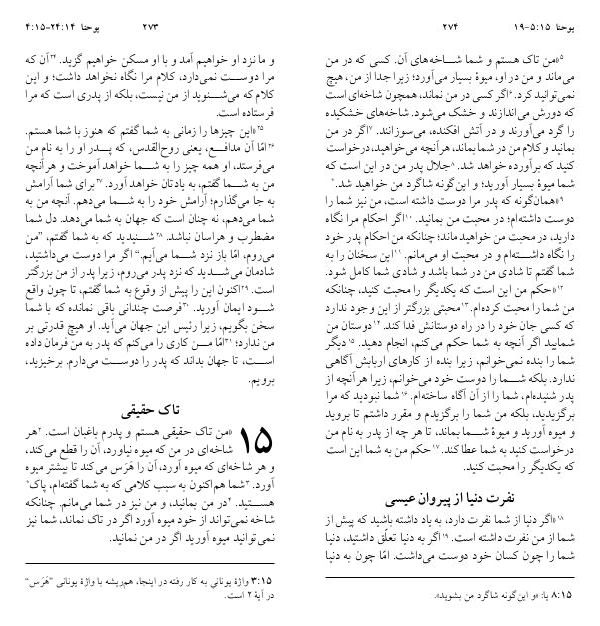 یوحنا ۲۴:۱۴-۴:۱۵ ۲۷۳
و ما نزد او خواهیم آمد و با او مسکن خواهیم گزید. ۲۴آن که
مرا دوست نمی‌دارد، کلام مرا نگاه نخواهد داشت؛ و این
کلام که می‌شنوید از من نیست، بلکه از پدری است که مرا
فرستاده است.
۲۵«این چیزها را زمانی به شما گفتم که هنوز با شما هستم.
۲۶امّا آن مدافع، یعنی روح‌القدس، که پدر او را به نام من
می‌فرستد، او همه چیز را به شما خواهد آموخت و هرآنچه
من به شما گفتم، به یادتان خواهد آورد. ۲۷برای شما آرامش
به جا می‌گذارم؛ آرامش خود را به شما می‌دهم. آنچه من به
شما می‌دهم، نه چنان است که جهان به شما می‌دهد. دل شما
مضطرب و هراسان نباشد. ۲۸شنیدید که به شما گفتم، ”من
می‌روم، امّا باز نزد شما می‌آیم.“ اگر مرا دوست می‌داشتید،
شادمان می‌شدید که نزد پدر می‌روم، زیرا پدر از من بزرگتر
است. ۲۹اکنون این را پیش از وقوع به شما گفتم، تا چون واقع
شود ایمان آورید. ۳۰فرصت چندانی باقی نمانده که با شما
سخن بگویم، زیرا رئیس این جهان می‌آید. او هیچ قدرتی بر
من ندارد؛ ۳۱امّا من کاری را می‌کنم که پدر به من فرمان داده
است، تا جهان بداند که پدر را دوست می‌دارم. برخیزید،
برویم.
تاک حقیقی
۱۵ «من تاک حقیقی هستم و پدرم باغبان است. ۲هر
شاخه‌ای در من که میوه نیاورد، آن را قطع می‌کند،
و هر شاخه‌ای که میوه آورد، آن را هَرَس می‌کند تا بیشتر میوه
آورد. ۳شما هم‌اکنون به سبب کلامی که به شما گفته‌ام، پاک*
هستید. ۴در من بمانید، و من نیز در شما می‌مانم. چنانکه
شاخه نمی‌تواند از خود میوه آورد اگر در تاک نماند، شما نیز
نمی‌توانید میوه آورید اگر در من نمانید.
۳:۱۵ واژهٔ یونانی به کار رفته در اینجا، هم‌ریشه با واژهٔ یونانی ”هَرَس“
در آیهٔ ۲ است.
یوحنا ۵:۱۵-۱۹ ۲۷۴
۵«من تاک هستم و شما شاخه‌های آن. کسی که در من
می‌ماند و من در او، میوهٔ بسیار می‌آورد؛ زیرا جدا از من، هیچ
نمی‌توانید کرد. ۶اگر کسی در من نماند، همچون شاخه‌ای است
که دورش می‌اندازند و خشک می‌شود. شاخه‌های خشکیده
را گرد می‌آورند و در آتش افکنده، می‌سوزانند. ۷اگر در من
بمانید و کلام من در شما بماند، هرآنچه می‌خواهید، درخواست
کنید که برآورده خواهد شد. ۸جلال پدر من در این است که
شما میوهٔ بسیار آورید؛ و این‌گونه شاگرد من خواهید شد.*
۹«همان‌گونه که پدر مرا دوست داشته است، من نیز شما را
دوست داشته‌ام؛ در محبت من بمانید. ۱۰اگر احکام مرا نگاه
دارید، در محبت من خواهید ماند؛ چنانکه من احکام پدر خود
را نگاه داشته‌ام و در محبت او می‌مانم. ۱۱این سخنان را به
شما گفتم تا شادی من در شما باشد و شادی شما کامل شود.
۱۲«حکم من این است که یکدیگر را محبت کنید، چنانکه
من شما را محبت کرده‌ام. ۱۳محبتی بزرگتر از این وجود ندارد
که کسی جان خود را در راه دوستانش فدا کند. ۱۴دوستان من
شمایید اگر آنچه به شما حکم می‌کنم، انجام دهید. ۱۵دیگر
شما را بنده نمی‌خوانم، زیرا بنده از کارهای اربابش آگاهی
ندارد. بلکه شما را دوست خود می‌خوانم، زیرا هرآنچه از
پدر شنیده‌ام، شما را از آن آگاه ساخته‌ام. ۱۶شما نبودید که مرا
برگزیدید، بلکه من شما را برگزیدم و مقرر داشتم تا بروید
و میوه آورید و میوهٔ شما بماند، تا هر چه از پدر به نام من
درخواست کنید به شما عطا کند. ۱۷حکم من به شما این است
که یکدیگر را محبت کنید.
نفرت دنیا از پیروان عیسی
۱۸«اگر دنیا از شما نفرت دارد، به یاد داشته باشید که پیش از
شما از من نفرت داشته است. ۱۹اگر به دنیا تعلّق داشتید، دنیا
شما را چون کسان خود دوست می‌داشت. امّا چون به دنیا
۸:۱۵ یا: «و این‌گونه شاگرد من بشوید».